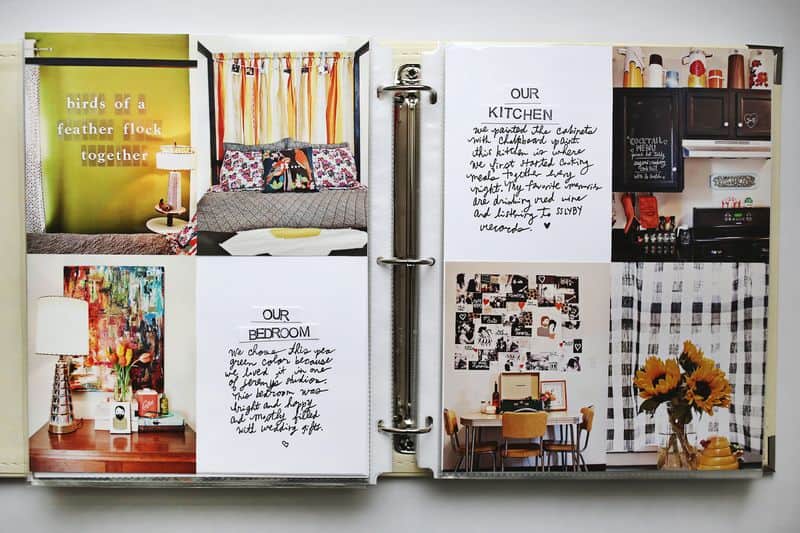 birds of a
feather flock
together
OUR
BEDROOM
We chose this pea
green color because
we lived it in one
of Jeremy's studios.
This bedroom was
bright and happy
and mostly filled
with wedding gifts.
OUR
KITCHEN
we painted the cabinets
with chalkboard paint.
this kitchen is where
we first started cooking
meals together every
night. My favorite memories
are drinking red wine
and listening to SSLYBY
records.
COCKTAIL
MENU